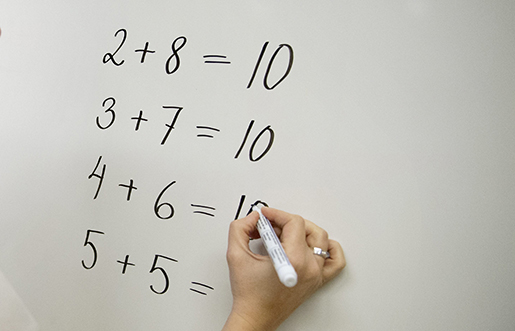 2 + 8 = 10
3 + 7 = 10
4 + 6 = 10
5 + 5 =